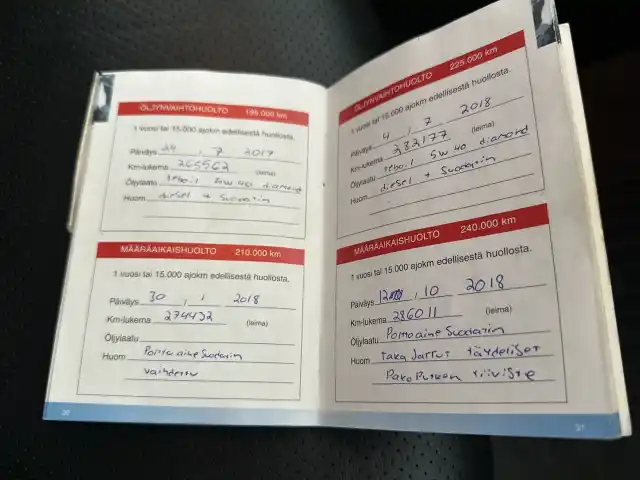 ÖLJYNVAIHTOHUOLTO 195.000 km
1 vuosi tai 15.000 ajokm edellisestä huollosta.
Päiväys 24 . 7 2017
Km-lukema 265562 (leima)
Öljylaatu teboil 5w40 diamond
Huom diesel + Suodatin
MÄÄRÄAIKAISHUOLTO 210.000 km
1 vuosi tai 15.000 ajokm edellisestä huollosta.
Päiväys 30 . 1 2018
Km-lukema 274432 (leima)
Öljylaatu
Huom Polttoaine Suodatin
vaihdettu
30
ÖLJYNVAIHTOHUOLTO 225.000 km
1 vuosi tai 15.000 ajokm edellisestä huollosta.
Päiväys 4 . 7 2018
Km-lukema 282177 (leima)
Öljylaatu teboil 5w 40 diamond
Huom diesel + Suodatin
MÄÄRÄAIKAISHUOLTO 240.000 km
1 vuosi tai 15.000 ajokm edellisestä huollosta.
Päiväys 12 . 10 2018
Km-lukema 286011 (leima)
Öljylaatu Polttoaine Suodatin
Huom taka Jarrut täydeliset
Pako Putken tiiviste
31